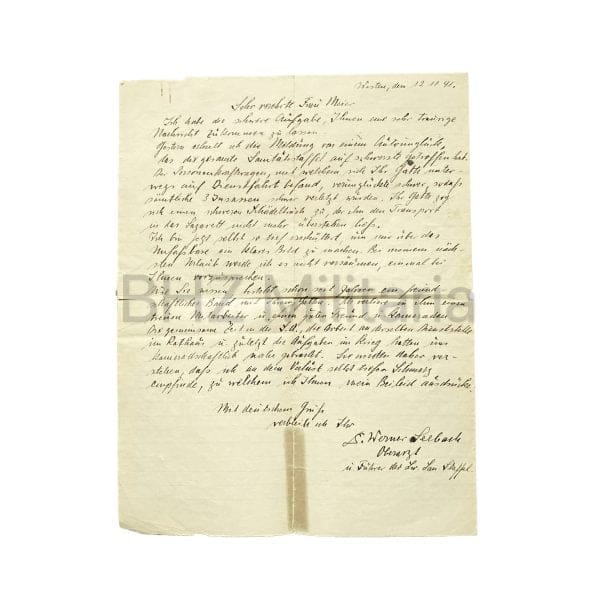 Westen, den 12.11.41.
Sehr verehrte Frau Meier
Ich habe die schwere Aufgabe, Ihnen eine sehr traurige
Nachricht zukommen zu lassen.
Gestern erhielt ich die Meldung von einem Autounglück,
das die gesamte Sanitätsstaffel auf schwerste getroffen hat.
Der Personenkraftwagen, mit welchem sich Ihr Gatte unter-
wegs auf Dienstfahrt befand, verunglückte schwer, sodass
sämtliche 3 Insassen schwer verletzt wurden. Ihr Gatte zog
sich einen schweren Schädelbruch zu, der ihn den Transport
in das Lazarett nicht mehr überstehen liess.
Ich bin jetzt selbst so tief erschüttert, um mir über das
Unfassbare ein klares Bild zu machen. Bei meinem näch-
sten Urlaub werde ich es nicht versäumen, einmal bei
Ihnen vorzusprechen.
Wie Sie wissen besteht schon seit Jahren ein freund-
schaftliches Band mit Ihrem Gatten. Ich verliere in ihm einen
treuen Mitarbeiter u. einen guten Freund u. Kameraden.
Die gemeinsame Zeit in der S.A., die Arbeit an derselben Dienststelle
im Rathaus u. zuletzt die Aufgaben im Krieg hatten uns
kameradschaftlich nahe gebracht. Sie werden daher ver-
stehen, dass ich an dem Verlust selbst tiefen Schmerz
empfinde, zu welchem ich Ihnen mein Beileid ausdrücke.
Mit deutschem Gruß
verbleibe ich Ihr
Dr. Werner Seebach
Oberarzt
u. Führer der San Staffel.
BvZ Militaria